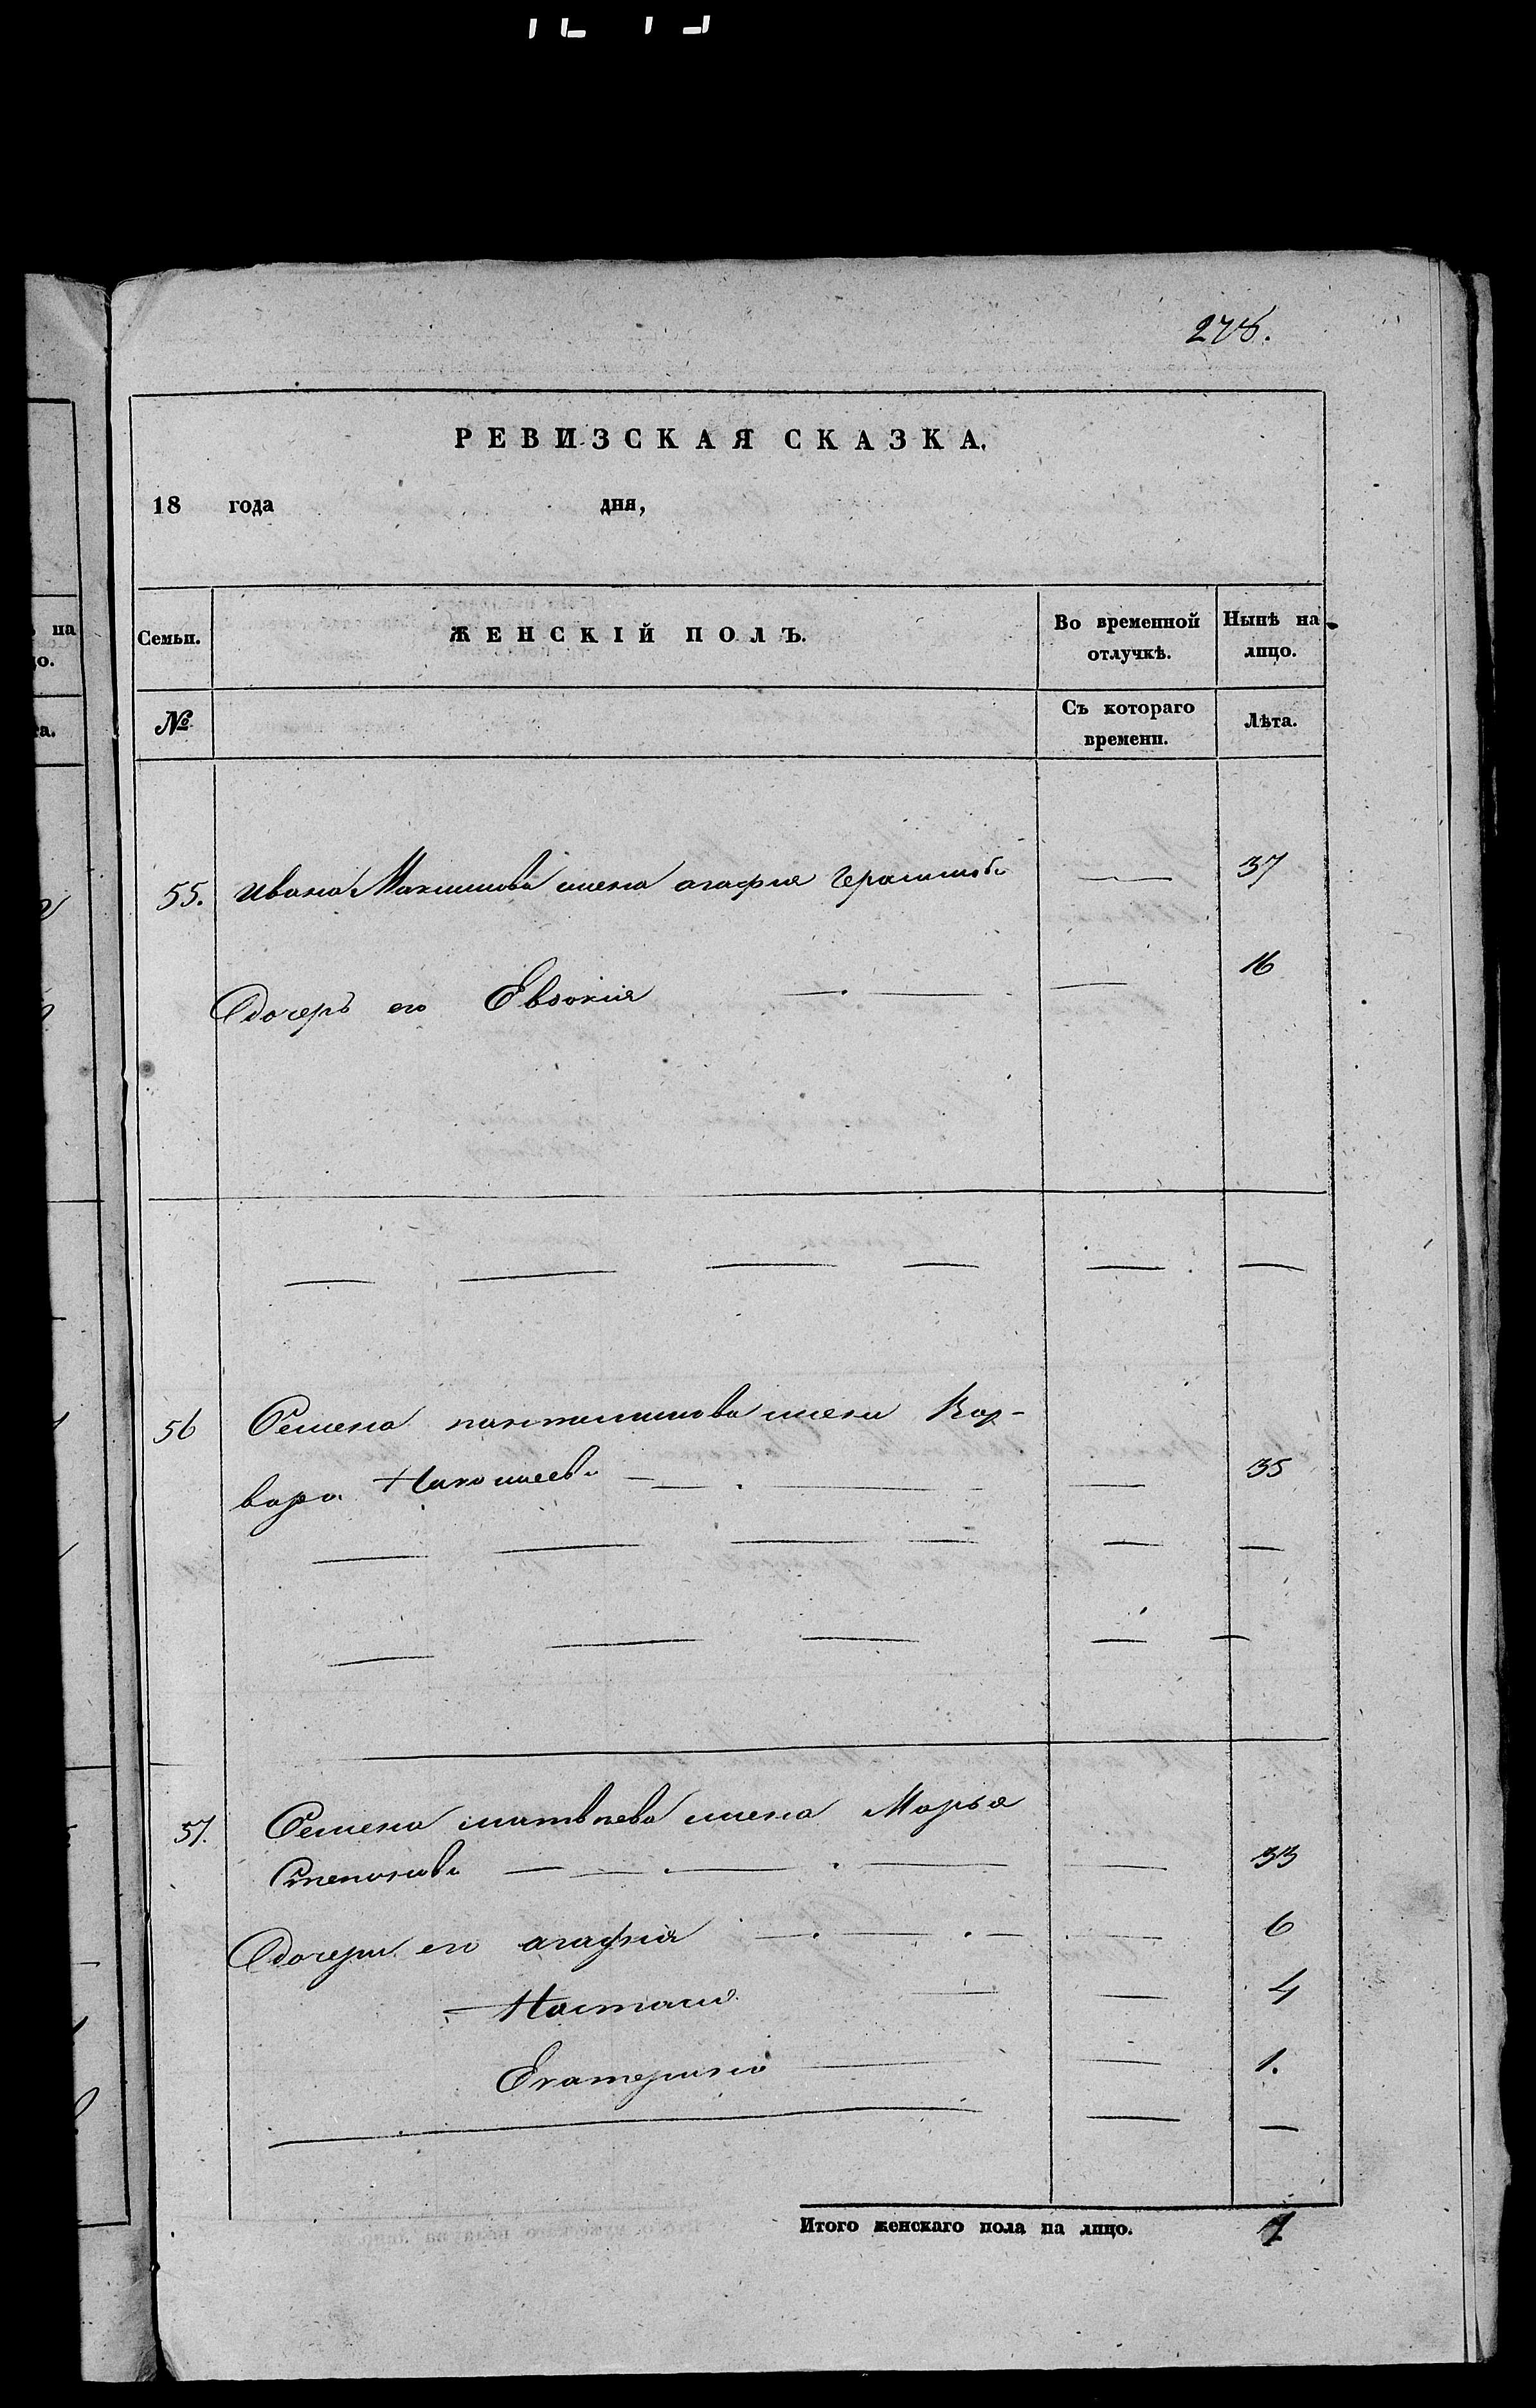 278.
РЕВИЗСКАЯ СКАЗКА.
18 года дня,
Семьи. ЖЕНСКІЙ ПОЛЪ. Во временной отлучкѣ. Нынѣ на лицо.
№ Съ котораго времени. Лѣта.
55. Ивана Максимова жена агафия Герасимова 37
Дочерь его Евдокия 16
56 Семена жена Вар-
вара 35
57. Семена матвѣева жена Марья
Степанова 33
Дочери его агафия 6
Настасия 4
Екатерина 1.
Итого женскаго пола на лицо. 7
на
цо.
та.